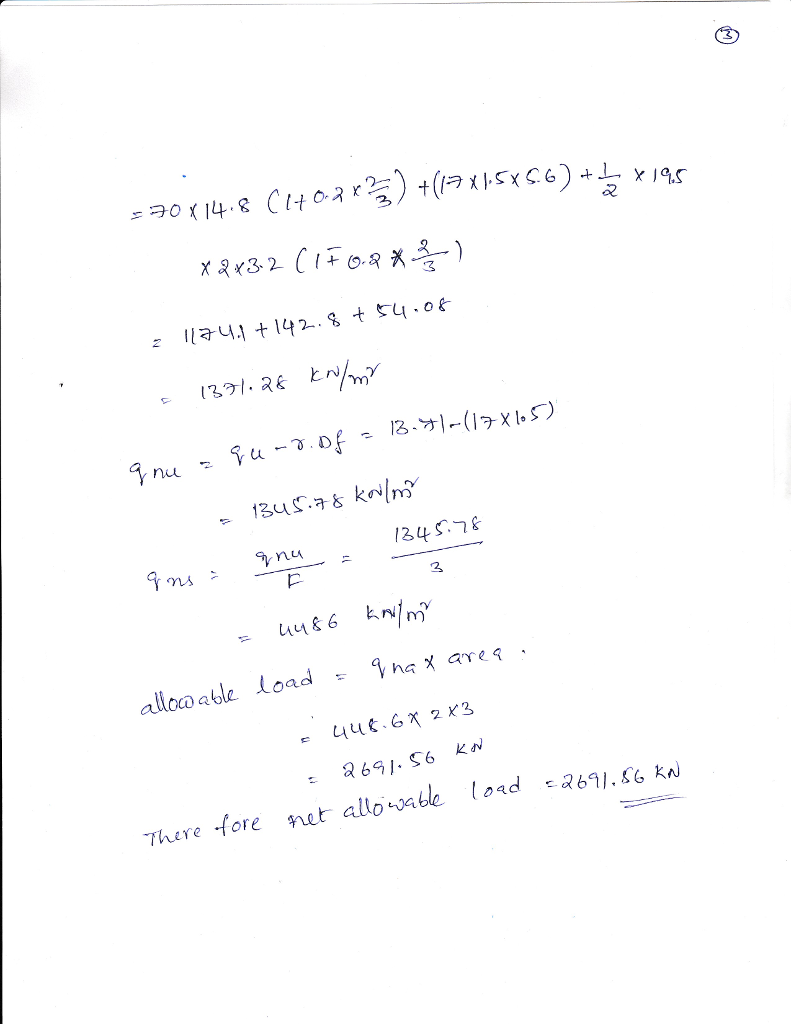 3
= 70 x 14.8 (1+0.2 x 2/3) + (17 x 1.5 x 5.6) + 1/2 x 19.5
x 2 x 3.2 (1 ∓ 0.2 x 2/3)
= 1174.1 + 142.8 + 54.08
= 1371.28 kN/m²
qnu = qu - γ.Df = 13.71-(17x1.5)
= 1345.78 kN/m²
qns = qnu/F = 1345.78/3
= 4486 kN/m²
allowable load = qna x area.
= 448.6 x 2x3
= 2691.56 KN
There fore net allowable load = 2691.56 KN